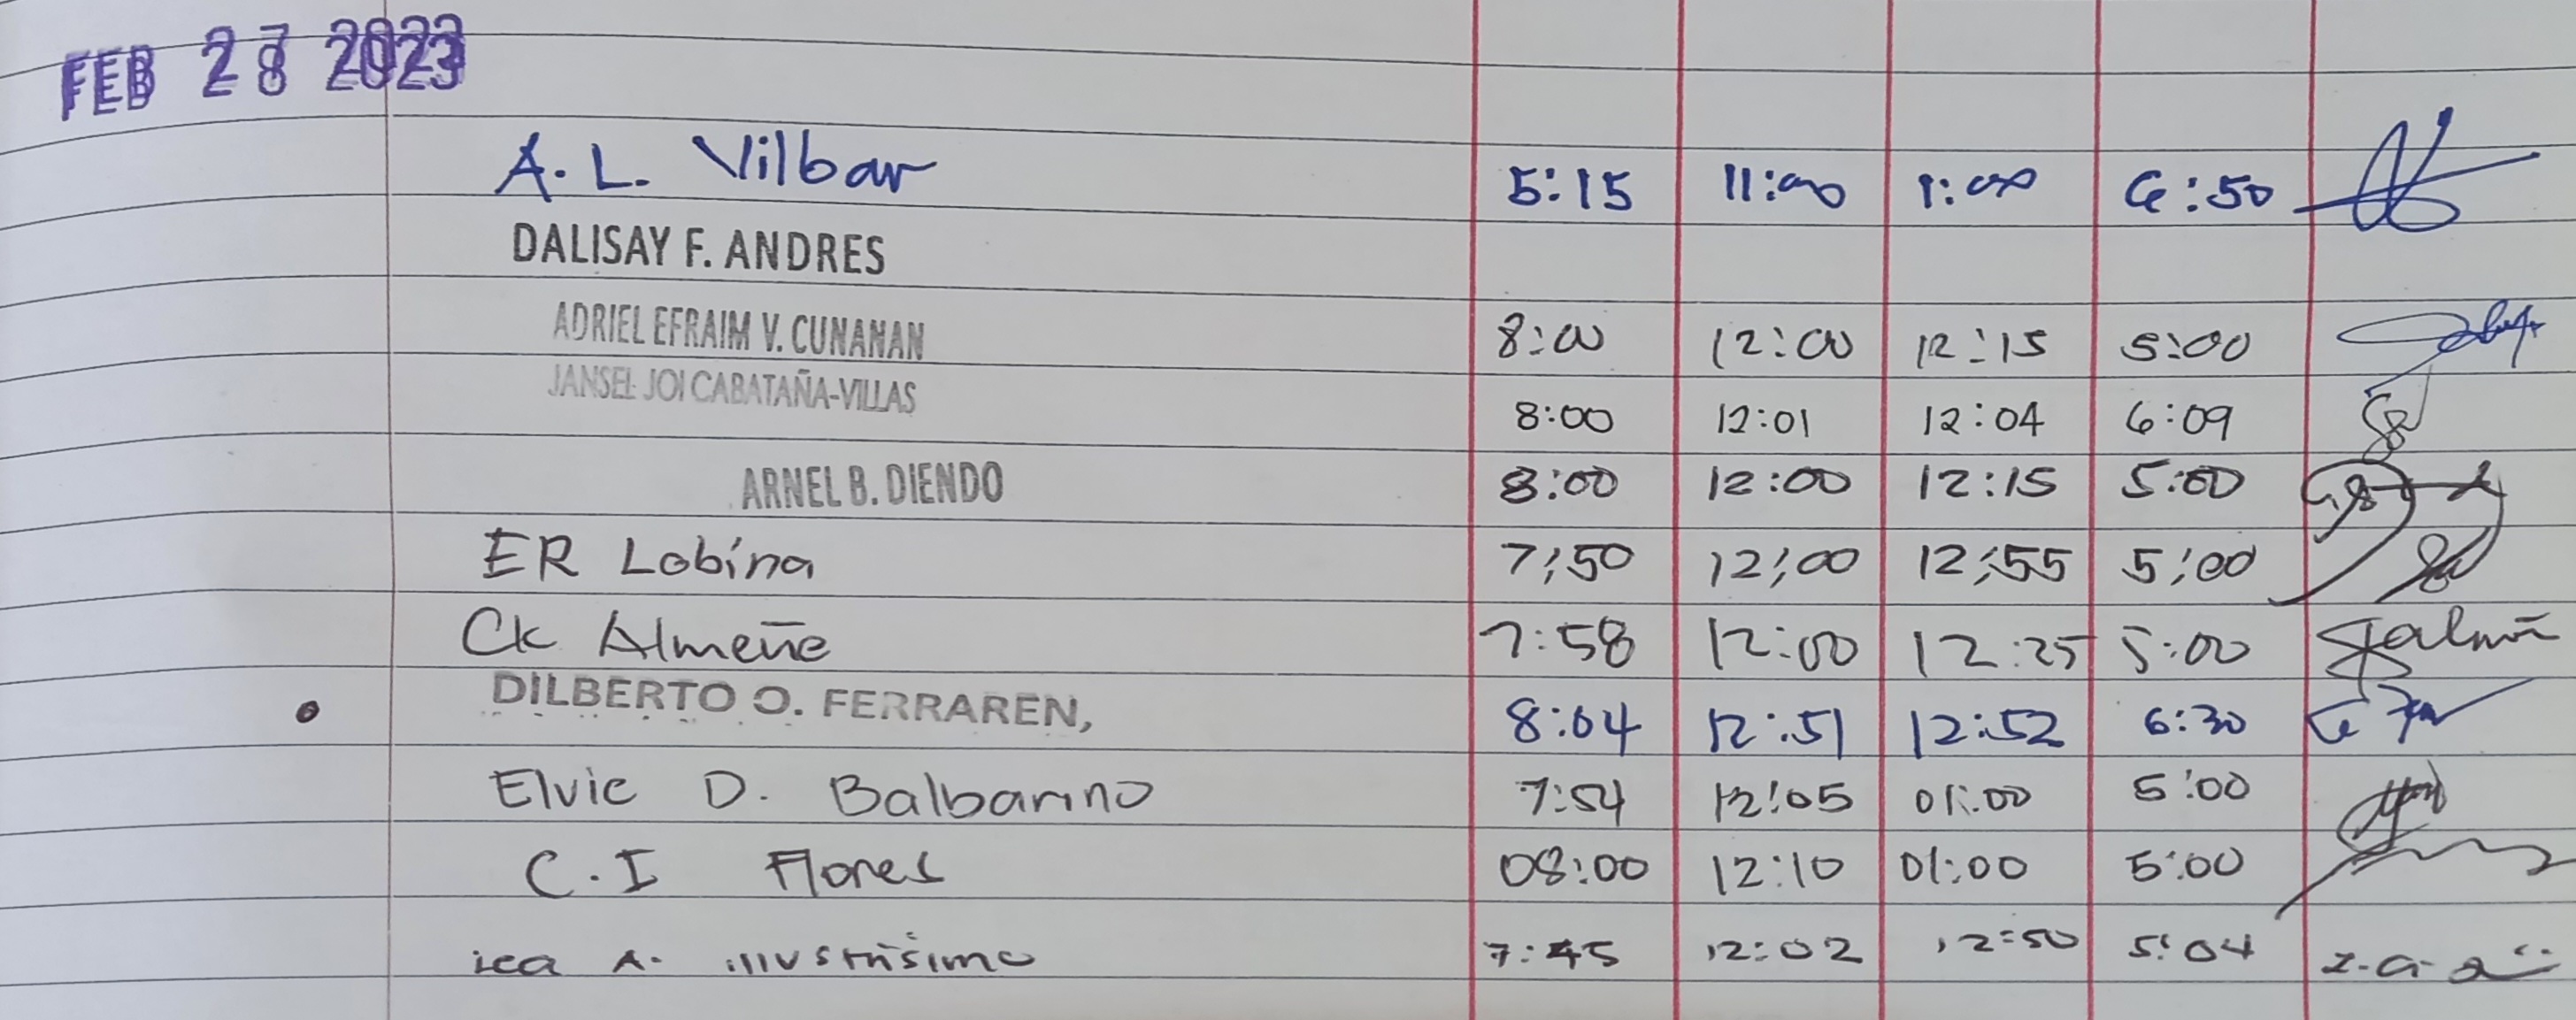 FEB 2 2023
A. L. Vilbar 5:15 11:00 1:00 6:50
DALISAY F. ANDRES
ADRIEL EFRAIM V. CUNANAN 8:00 12:00 12:15 5:00
JANSEL JOI CABATAÑA-VILLAS 8:00 12:01 12:04 6:09
ARNEL B. DIENDO 8:00 12:00 12:15 5:00
ER Lobina 7:50 12:00 12:55 5:00
CK Almeñe 7:58 12:00 12:25 5:00
DILBERTO O. FERRAREN, 8:04 12:51 12:52 6:30
Elvie D. Balbarino 7:54 12:05 01:00 5:00
C.I Flores 08:00 12:10 01:00 5:00
ica A. illustrisimo 7:45 12:02 12:50 5:04